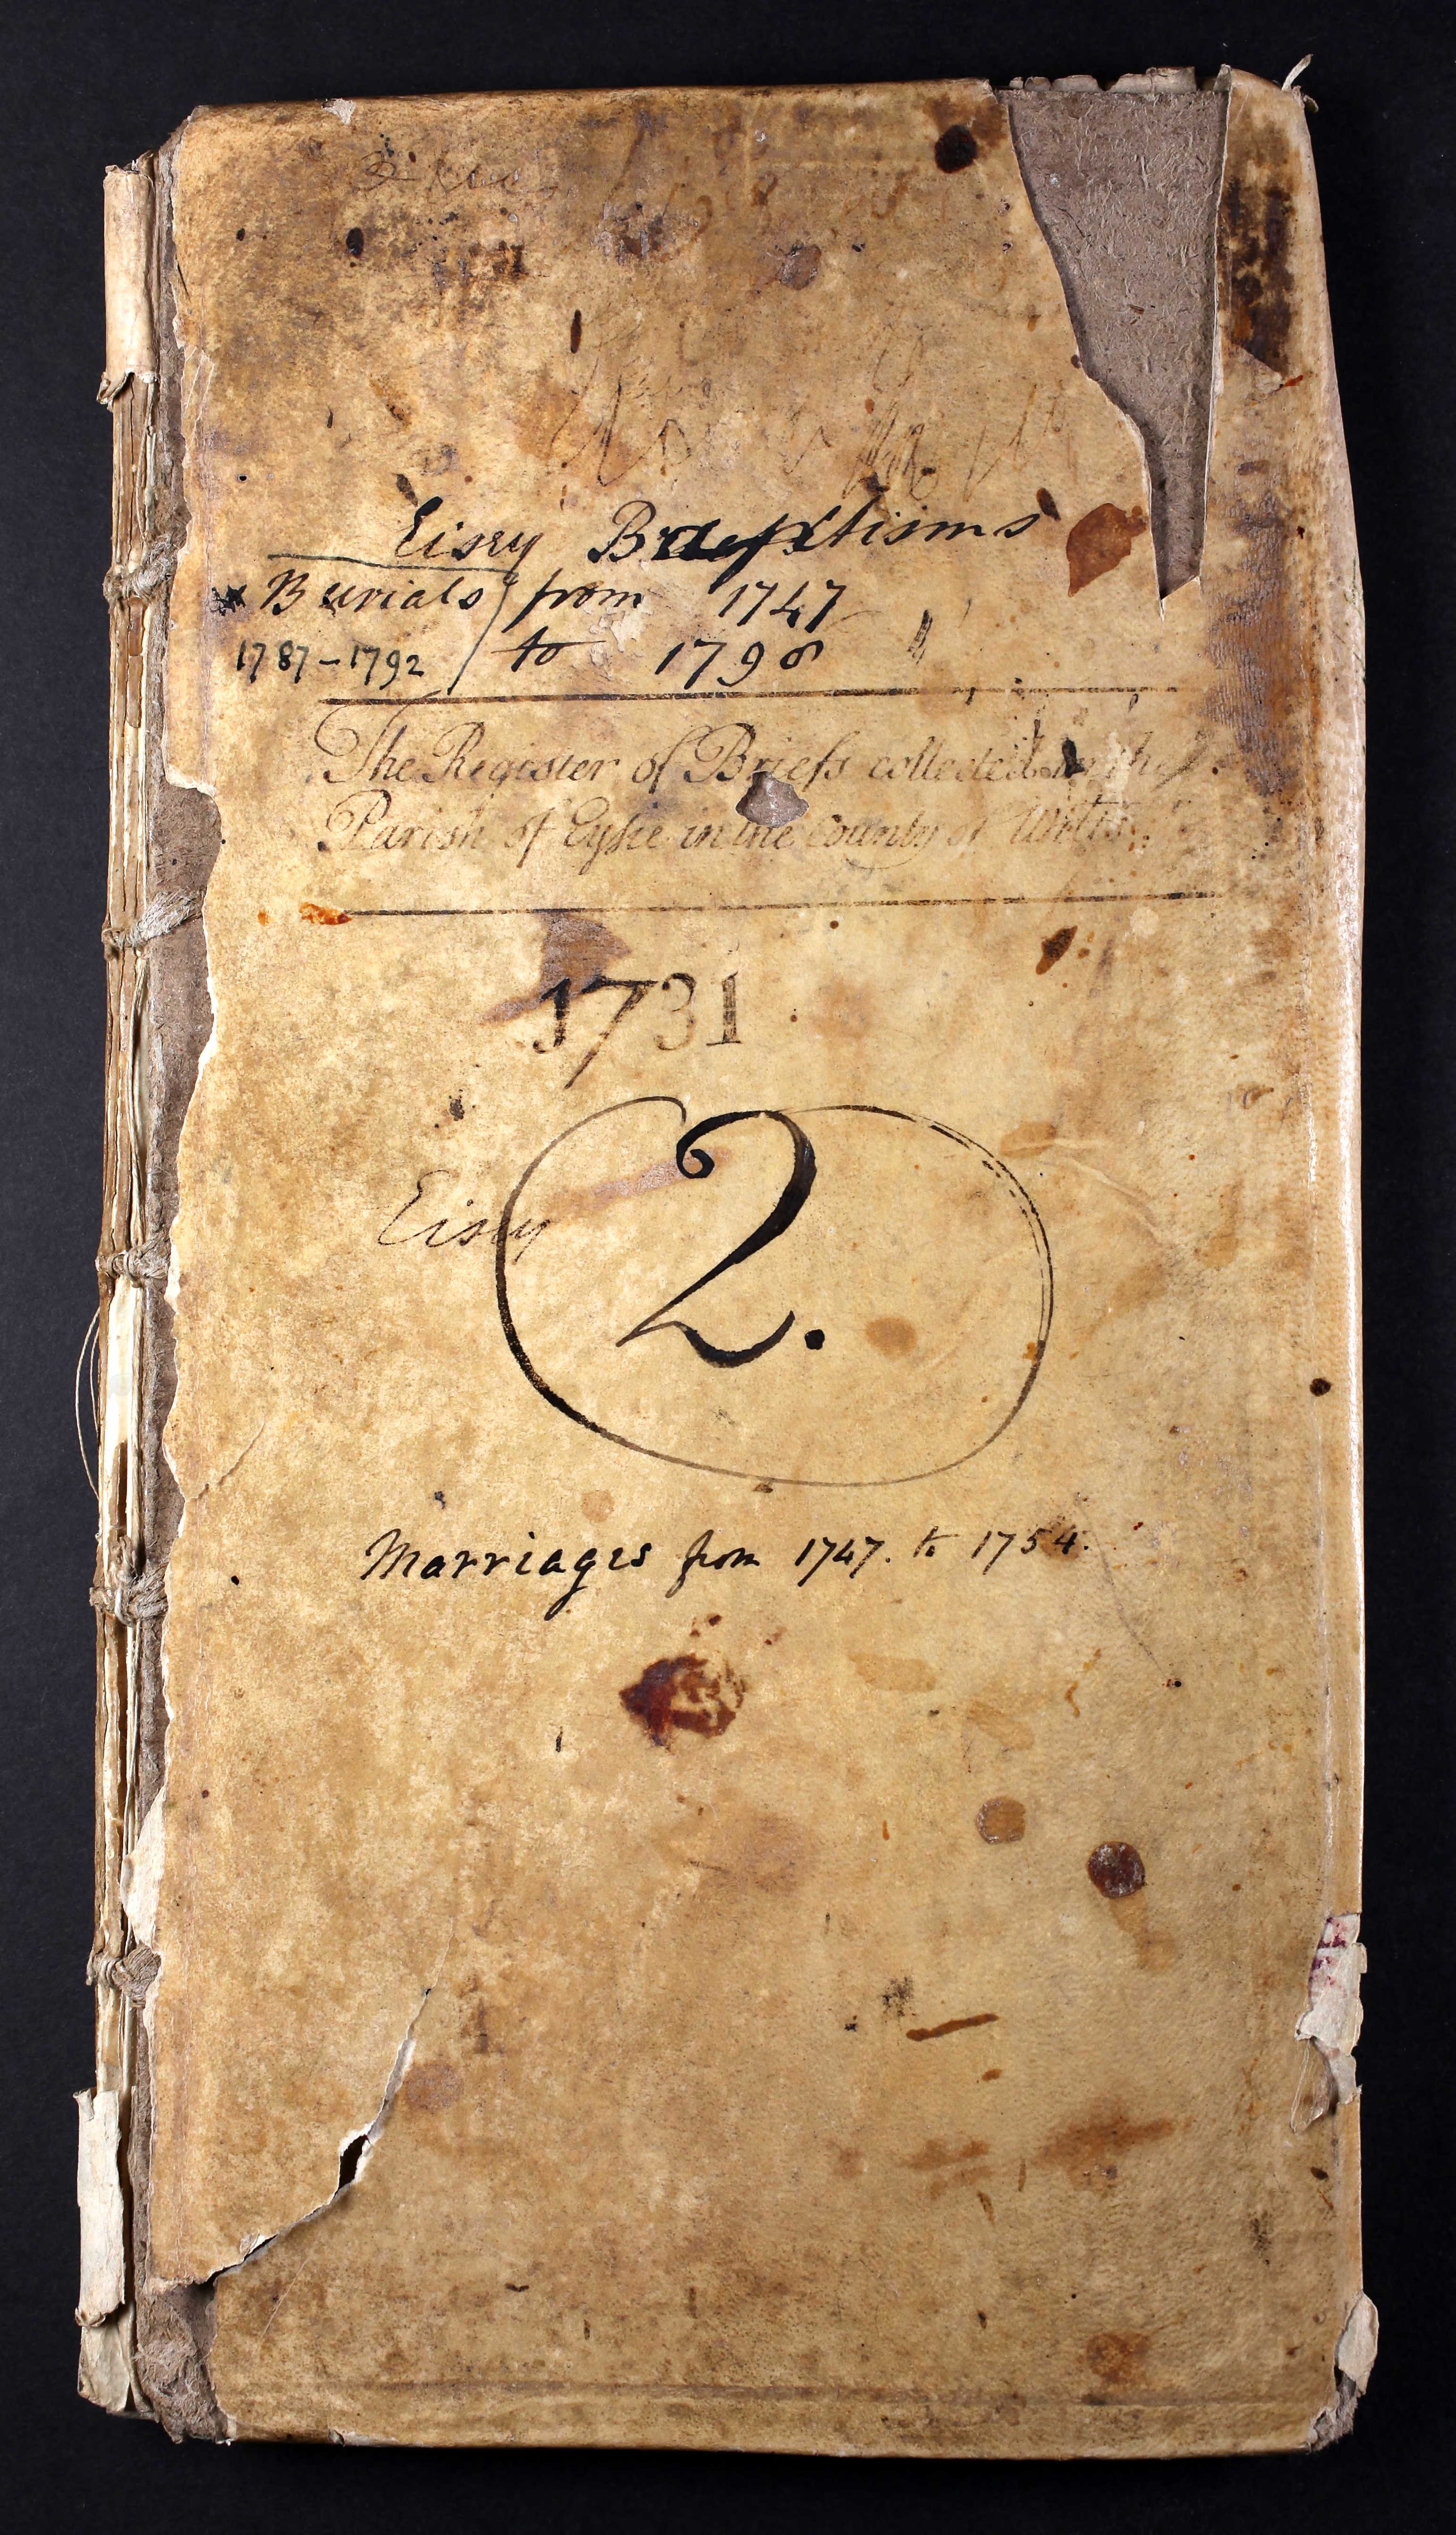 Eisey Baptisms
Burials from 1747
1787-1792 to 1798
The Register of Briefs collected in the
Parish of Eysie in the County of Wilts
1731
2.
Eisey
Marriages from 1747. to 1754.